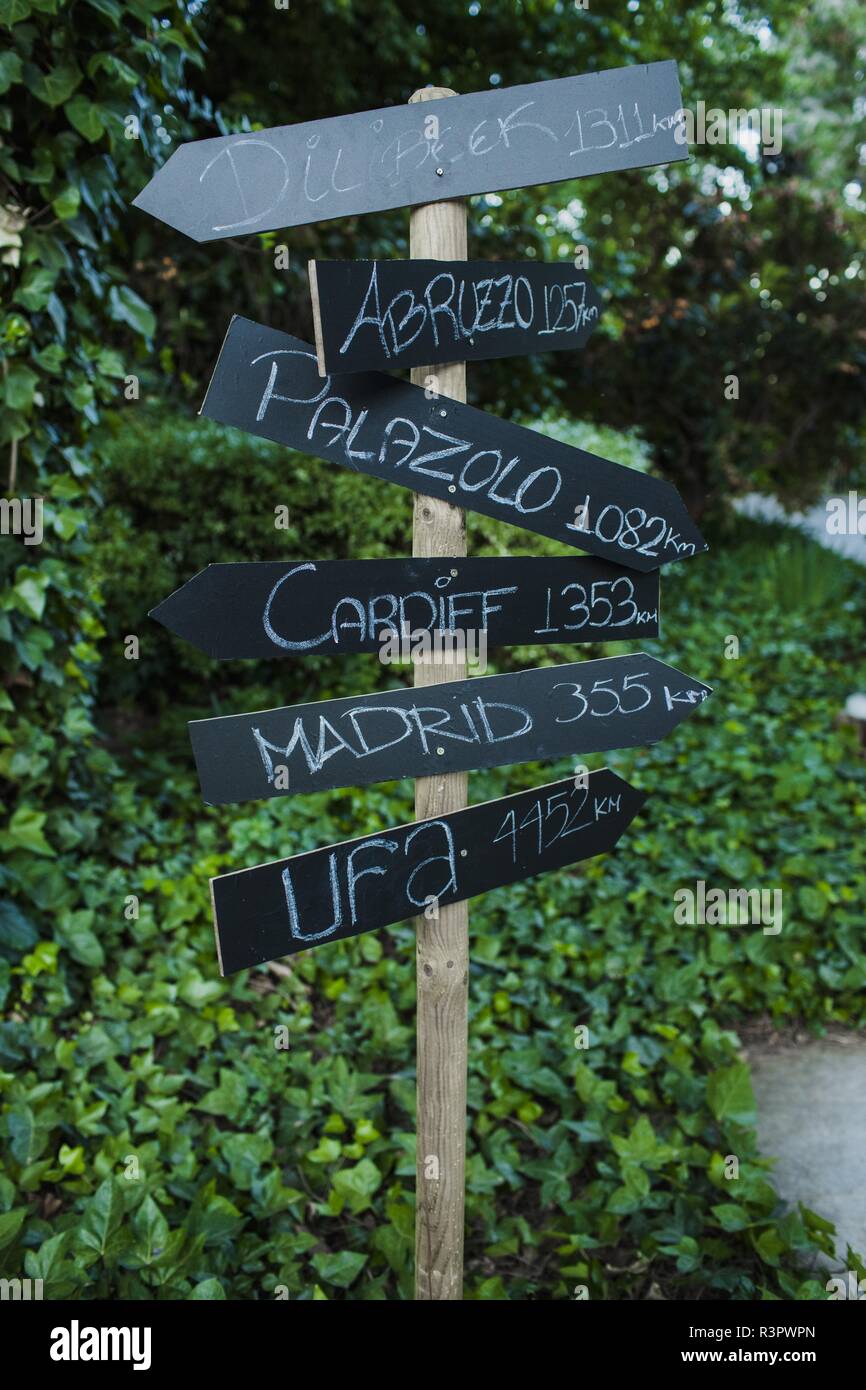 DiLiBEEK 1311KM
ABRUZZO 1257KM
PALAZOLO 1082KM
CARDIFF 1353KM
MADRID 355 KM
UFa 4452KM
alamy
Image ID: R3PWPN
www.alamy.com